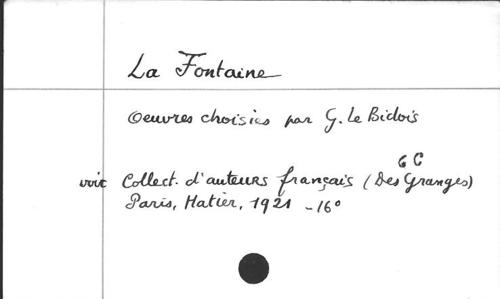 La Fontaine
Oeuvres choisies par G. Le Bidois
G C
voir Collect. d'auteurs français (Des Granges)
Paris, Hatier, 1921 - 16°